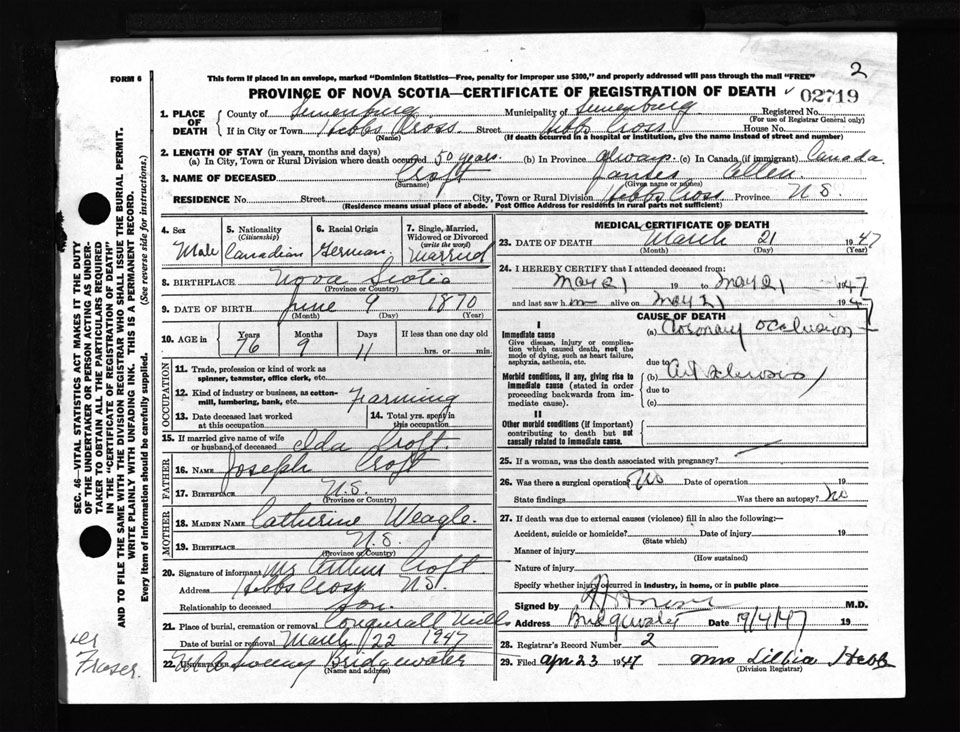 2
FORM 6
This form if placed in an envelope, marked "Dominion Statistics—Free, penalty for improper use $300," and properly addressed will pass through the mail "FREE"
PROVINCE OF NOVA SCOTIA—CERTIFICATE OF REGISTRATION OF DEATH 02719
1. PLACE OF DEATH
County of Lunenburg Municipality of Lunenburg Registered No.
(For use of Registrar General only)
If in City or Town Hebbs Cross Street Hebbs Cross House No.
(Name) (If death occurred in a hospital or institution, give the name instead of street and number)
2. LENGTH OF STAY (in years, months and days)
(a) In City, Town or Rural Division where death occured 50 years. (b) In Province always (c) In Canada, (if immigrant) Canada
3. NAME OF DECEASED Croft James Allen.
(Surname) (Given name or names)
RESIDENCE No. Street City, Town or Rural Division Hebbs Cross Province N.S.
(Residence means usual place of abode. Post Office Address for residents in rural parts not sufficient)
4. Sex Male
5. Nationality (Citizenship) Canadian
6. Racial Origin German.
7. Single, Married, Widowed or Divorced (write the word) Married
8. BIRTHPLACE Nova Scotia
(Province or Country)
9. DATE OF BIRTH June 9 1870
(Month) (Day) (Year)
10. AGE in Years Months Days If less than one day old
76 9 11 hrs. or min.
OCCUPATION
11. Trade, profession or kind of work as spinner, teamster, office clerk, etc.
12. Kind of industry or business, as cotton-mill, lumbering, bank, etc. Farming
13. Date deceased last worked at this occupation
14. Total yrs. spent in this occupation
15. If married give name of wife or husband of deceased Ida Croft.
FATHER
16. NAME Joseph Croft
17. BIRTHPLACE N.S.
(Province or Country)
MOTHER
18. MAIDEN NAME Catherine Weagle.
19. BIRTHPLACE N.S.
(Province or Country)
20. Signature of informant Mr Arthur Croft
Address Hebbs Cross N.S.
Relationship to deceased son.
21. Place of burial, cremation or removal Conquerall Mills
Date of burial or removal March 22 1947
22. UNDERTAKER Sweeny Bridgewater
(Name and address)
MEDICAL CERTIFICATE OF DEATH
23. DATE OF DEATH March 21 1947
(Month) (Day) (Year)
24. I HEREBY CERTIFY that I attended deceased from:
Mar 21 19 to Mar 21 1947
and last saw him alive on Mar 21 1947
CAUSE OF DEATH
I
Immediate cause (a) Coronary occlusion
Give disease, injury or complication which caused death, not the mode of dying, such as heart failure, asphyxia, asthenia, etc.
due to
Morbid conditions, if any, giving rise to immediate cause (stated in order proceeding backwards from immediate cause).
(b) Art sclerosis
due to
(c)
II
Other morbid conditions (if important) contributing to death but not causally related to immediate cause.
25. If a woman, was the death associated with pregnancy?
26. Was there a surgical operation? No Date of operation 19
State findings Was there an autopsy? No
27. If death was due to external causes (violence) fill in also the following:—
Accident, suicide or homicide? Date of injury 19
(State which)
Manner of injury
(How sustained)
Nature of injury
Specify whether injury occurred in industry, in home, or in public place
Signed by M.D.
Address Bridgewater Date 19/4/47 19
28. Registrar's Record Number 2
29. Filed Apr 23 1947 Mrs Lillia Hebb
(Division Registrar)
SEC. 46—VITAL STATISTICS ACT MAKES IT THE DUTY
OF THE UNDERTAKER OR PERSON ACTING AS UNDER-
TAKER TO OBTAIN ALL THE PARTICULARS REQUIRED
IN THE "CERTIFICATE OF REGISTRATION OF DEATH"
AND TO FILE THE SAME WITH THE DIVISION REGISTRAR WHO SHALL ISSUE THE BURIAL PERMIT.
WRITE PLAINLY WITH UNFADING INK. THIS IS A PERMANENT RECORD.
Every item of information should be carefully supplied. (See reverse side for instructions.)
Fraser.